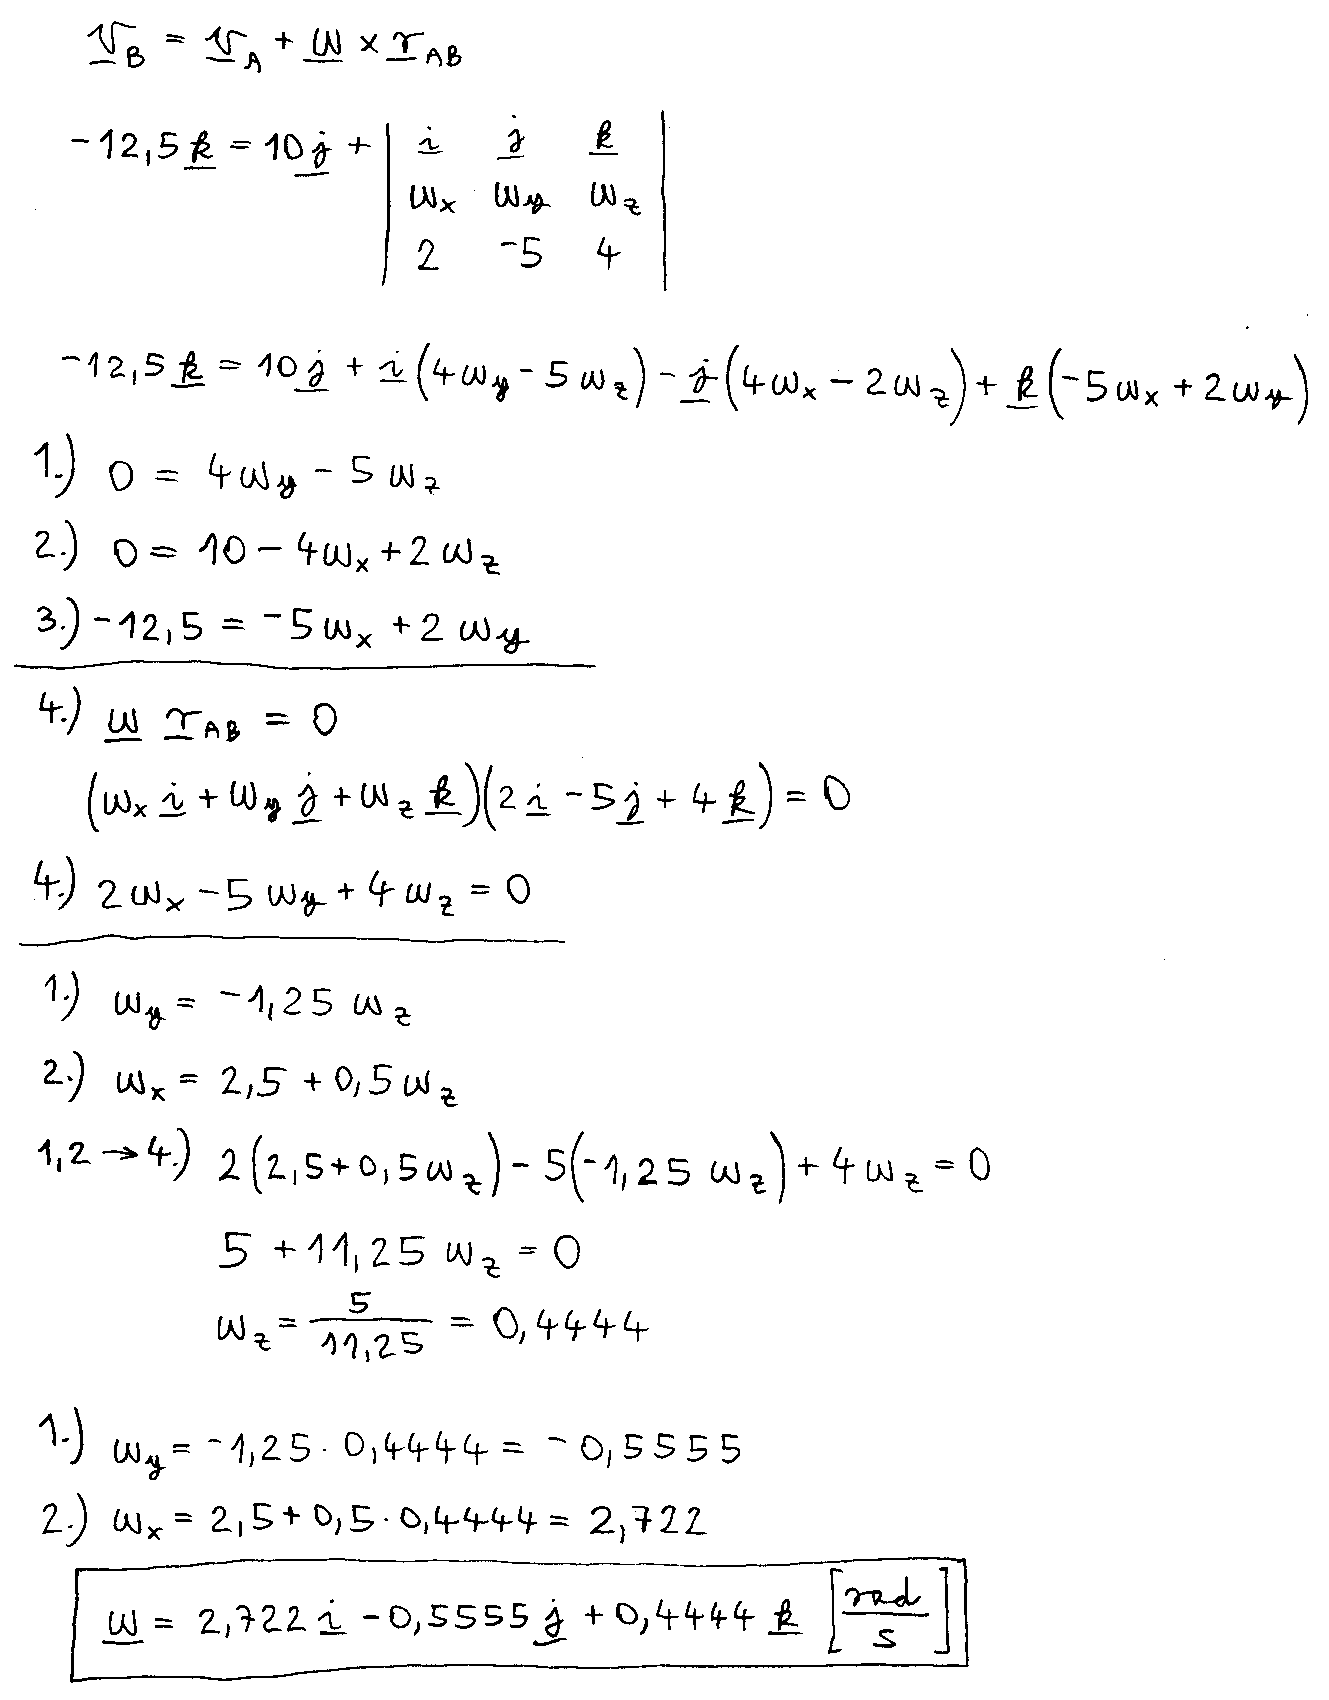 v_B = v_A + ω × r_AB
-12,5 k = 10 j + | i j k
ω_x ω_y ω_z
2 -5 4 |
-12,5 k = 10 j + i (4ω_y - 5ω_z) - j (4ω_x - 2ω_z) + k (-5ω_x + 2ω_y)
1.) 0 = 4ω_y - 5ω_z
2.) 0 = 10 - 4ω_x + 2ω_z
3.) -12,5 = -5ω_x + 2ω_y
4.) ω r_AB = 0
(ω_x i + ω_y j + ω_z k)(2 i - 5 j + 4 k) = 0
4.) 2ω_x - 5ω_y + 4ω_z = 0
1.) ω_y = -1,25 ω_z
2.) ω_x = 2,5 + 0,5ω_z
1,2 → 4.) 2(2,5 + 0,5ω_z) - 5(-1,25 ω_z) + 4ω_z = 0
5 + 11,25 ω_z = 0
ω_z = 5/11,25 = 0,4444
1.) ω_y = -1,25 · 0,4444 = -0,5555
2.) ω_x = 2,5 + 0,5 · 0,4444 = 2,722
ω = 2,722 i - 0,5555 j + 0,4444 k [rad/s]